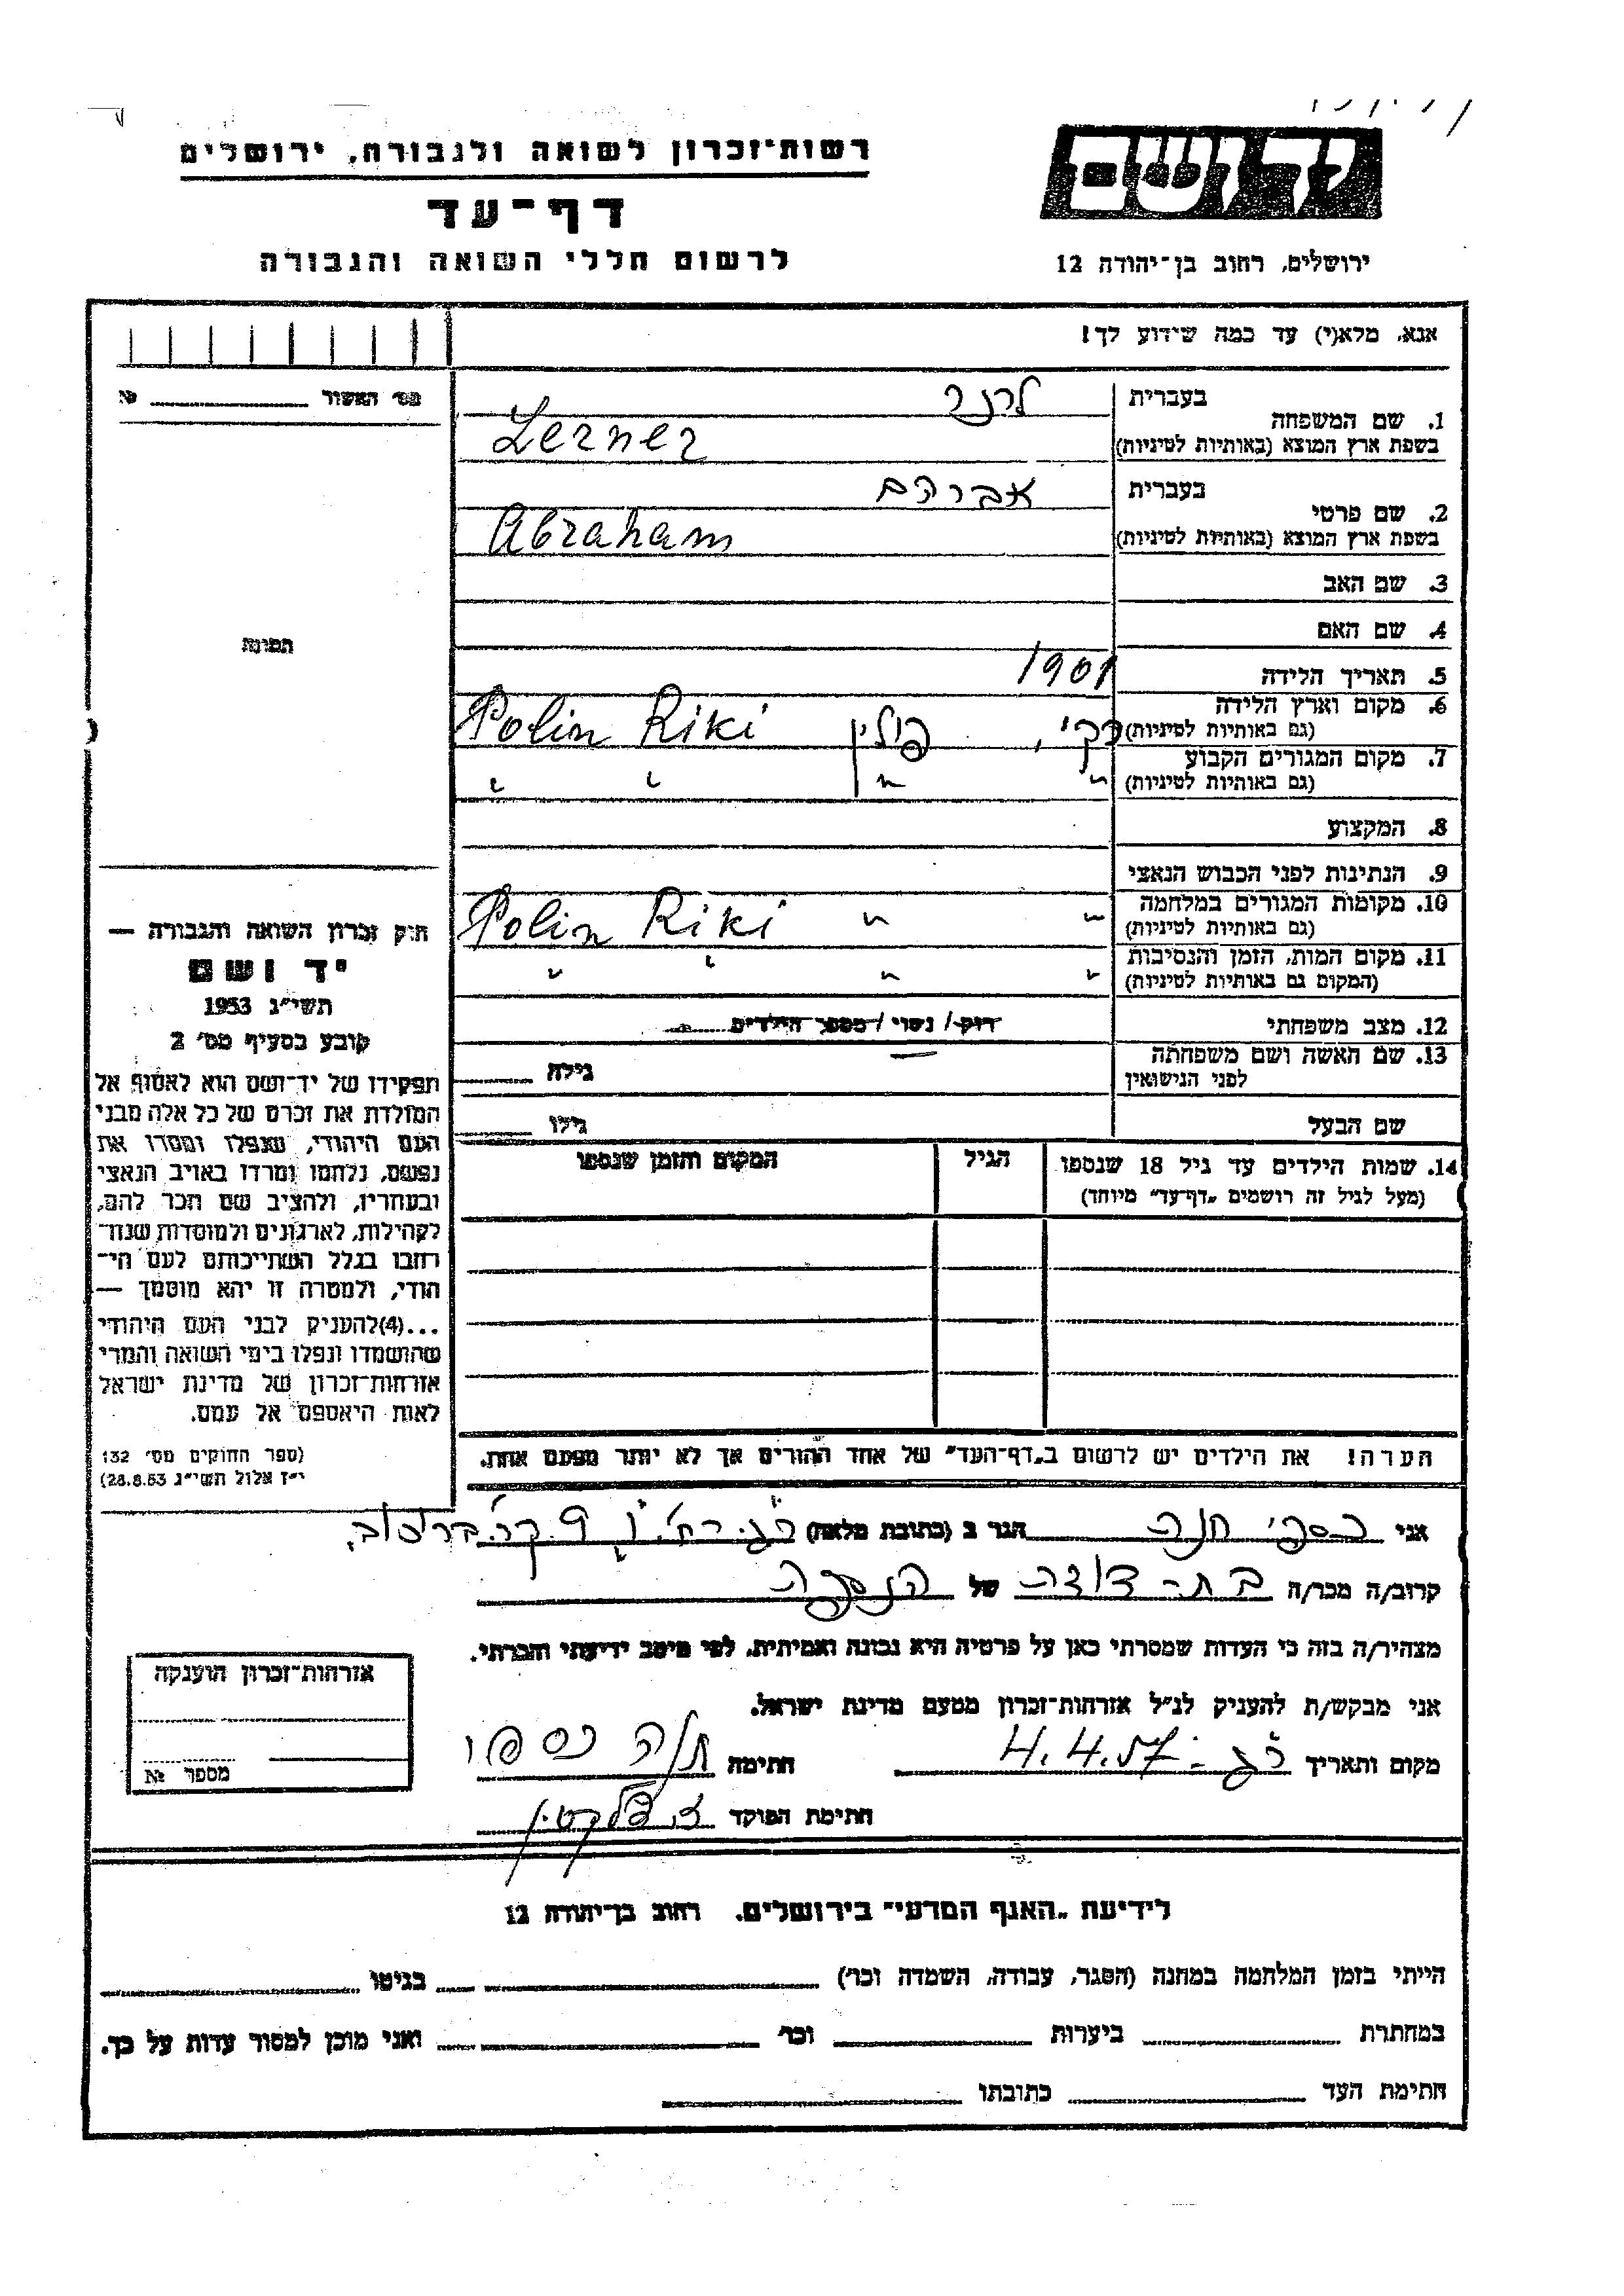 רשות־זכרון לשואה ולגבורה, ירושלים
דף־עד
לרשום חללי השואה והגבורה
יד ושם
ירושלים, רחוב בן־יהודה 12
אנא, מלא(י) עד כמה שידוע לך!
מס' האשור № 
תמונה
1. שם המשפחה
בעברית לרנר
בשפת ארץ המוצא (באותיות לטיניות) Lerner
2. שם פרטי
בעברית אברהם
בשפת ארץ המוצא (באותיות לטיניות) Abraham
3. שם האב
4. שם האם
5. תאריך הלידה 1901
6. מקום וארץ הלידה
(גם באותיות לטיניות) רקי, פולין Polin Riki
7. מקום המגורים הקבוע
(גם באותיות לטיניות) " " " "
8. המקצוע
9. הנתינות לפני הכבוש הנאצי
10. מקומות המגורים במלחמה
(גם באותיות לטיניות) " " Polin Riki
11. מקום המות, הזמן והנסיבות
(המקום גם באותיות לטיניות) " " " "
12. מצב משפחתי רוק/ נשוי / מספר הילדים
13. שם האשה ושם משפחתה
לפני הנישואין גילה
שם הבעל גילו
14. שמות הילדים עד גיל 18 שנספו הגיל המקום והזמן שנספו
(מעל לגיל זה רושמים „דף־עד" מיוחד)
הערה! את הילדים יש לרשום ב„דף־העד" של אחד ההורים אך לא יותר מפעם אחת.
חוק זכרון השואה והגבורה —
יד ושם
תשי"ג 1953
קובע בסעיף מס' 2
תפקידו של יד־ושם הוא לאסוף אל
המולדת את זכרם של כל אלה מבני
העם היהודי, שנפלו ומסרו את
נפשם, נלחמו ומרדו באויב הנאצי
ובעוזריו, ולהציב שם וזכר להם,
לקהילות, לארגונים ולמוסדות שנח־
רבו בגלל השתייכותם לעם הי־
הודי, ולמטרה זו יהא מוסמך —
...(4)להעניק לבני העם היהודי
שהושמדו ונפלו בימי השואה והמרי
אזרחות־זכרון של מדינת ישראל
לאות היאספם אל עמם.
(ספר החוקים מס' 132
י"ז אלול תשי"ג 28.8.53)
אני כספי חנה הגר ב (כתובת מלאה)
קרוב/ה מכר/ה בת־דודה של הנספה
מצהיר/ה בזה כי העדות שמסרתי כאן על פרטיה היא נכונה ואמיתית, לפי מיטב ידיעתי והכרתי.
אני מבקש/ת להעניק לנ"ל אזרחות־זכרון מטעם מדינת ישראל.
מקום ותאריך ר"ג - 4.4.57 חתימה חנה כספי
חתימת הפוקד
אזרחות־זכרון הוענקה
מספר №
לידיעת „האגף המדעי" בירושלים, רחוב בן־יהודה 12
הייתי בזמן המלחמה במחנה (הסגר, עבודה, השמדה וכו') בגיטו
במחתרת ביערות וכו' ואני מוכן למסור עדות על כך.
חתימת העד כתובתו